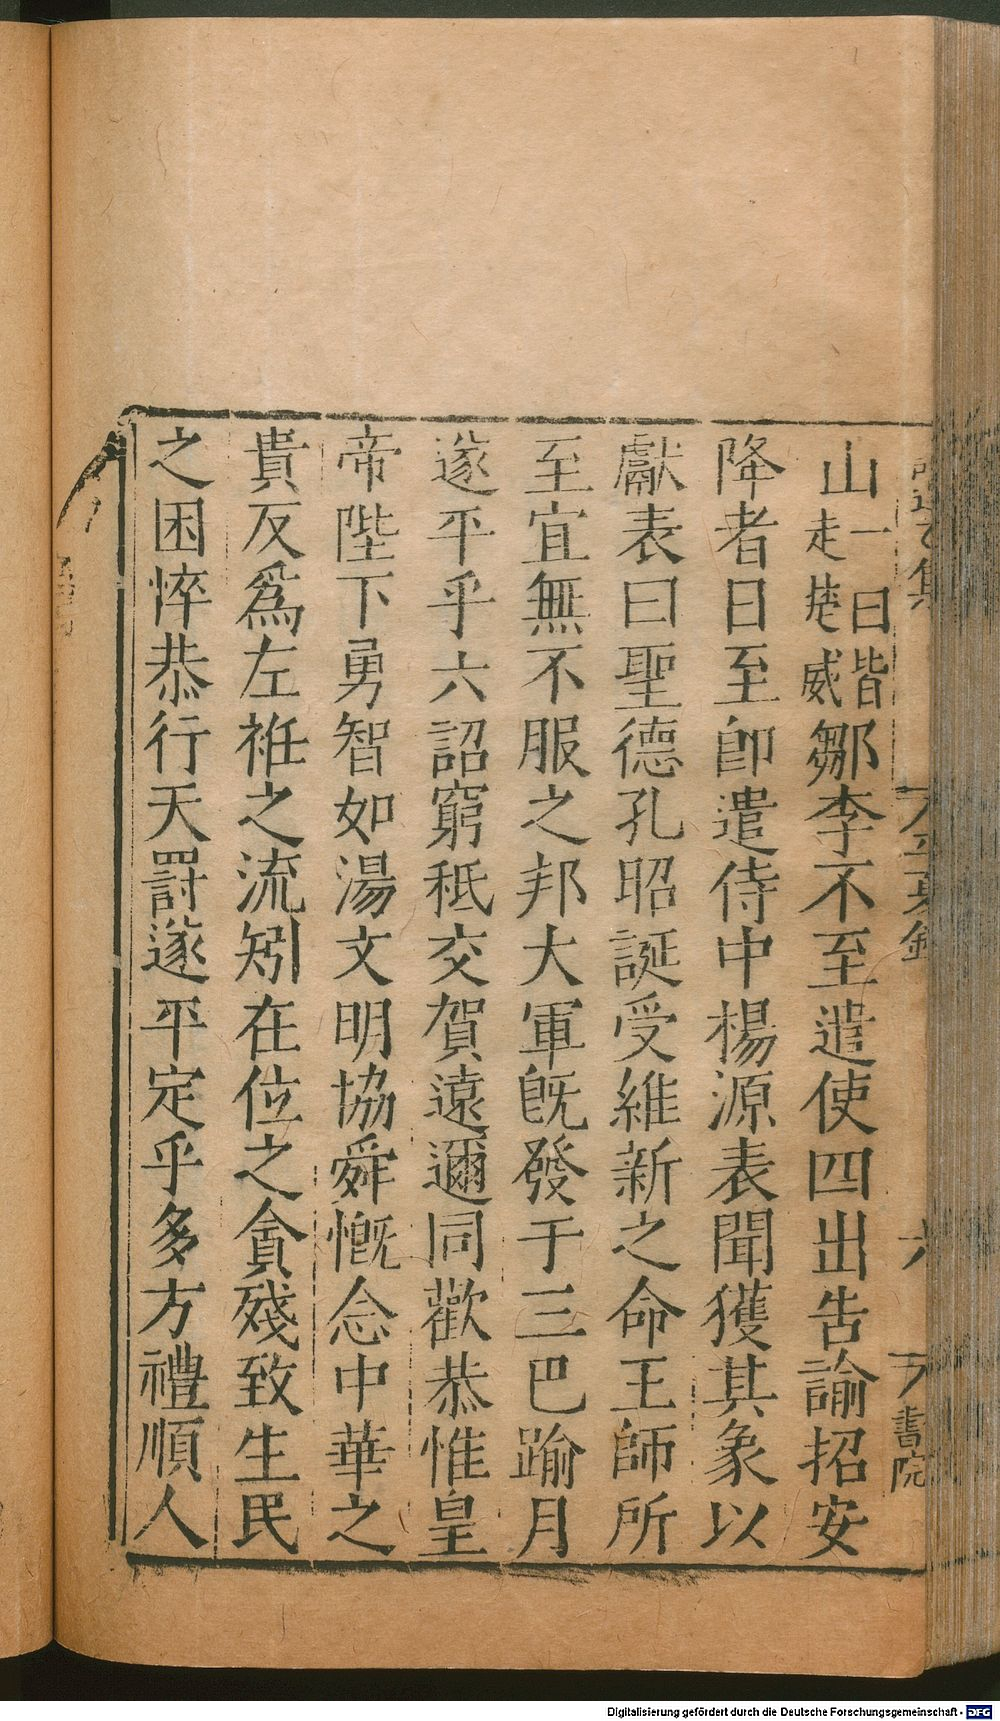 平夏錄 六 書院
山一曰皆走楚威鄒李不至遣使四出告諭招安
降者日至卽遣侍中楊源表聞獲其象以
獻表曰聖德孔昭誕受維新之命王師所
至宜無不服之邦大軍旣發于三巴踰月
遂平乎六詔窮秪交賀遠邇同歡恭惟皇
帝陛下勇智如湯文明協舜慨念中華之
貴反爲左袵之流矧在位之貪殘致生民
之困悴恭行天罰遂平定乎多方禮順人
Digitalisierung gefördert durch die Deutsche Forschungsgemeinschaft - DFG